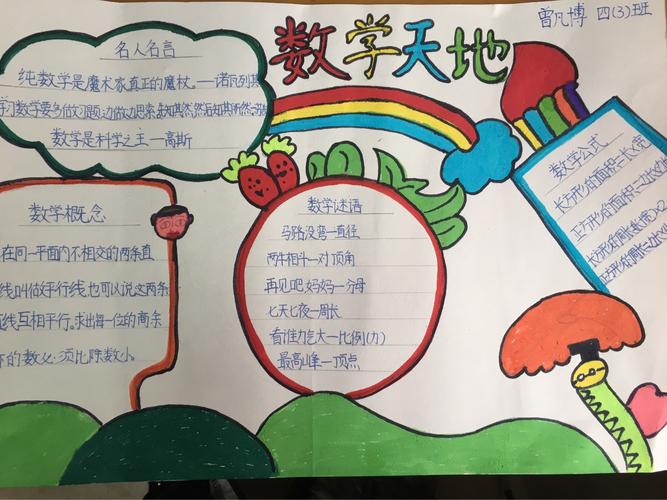 数学天地
曾凡博 四(3)班
名人名言
纯数学是魔术家真正的魔杖。——诺瓦列其
学习数学要多做习题,边做边思索,先知其然,然后知其所以然
数学是科学之王——高斯
数学公式
长方形的面积=长×宽
正方形的面积=边长×边
长方形的周长=(长+宽)×2
正方形的周长=边长×4
数学谜语
马路没弯—直径
两牛相斗—对顶角
再见吧妈妈—分母
七天七夜—周长
看谁力气大—比例(力)
最高峰—顶点
数学概念
在同一平面内不相交的两条直
线叫做平行线,也可以说这两条
线互相平行。求出每一位的商余
的数必须比除数小